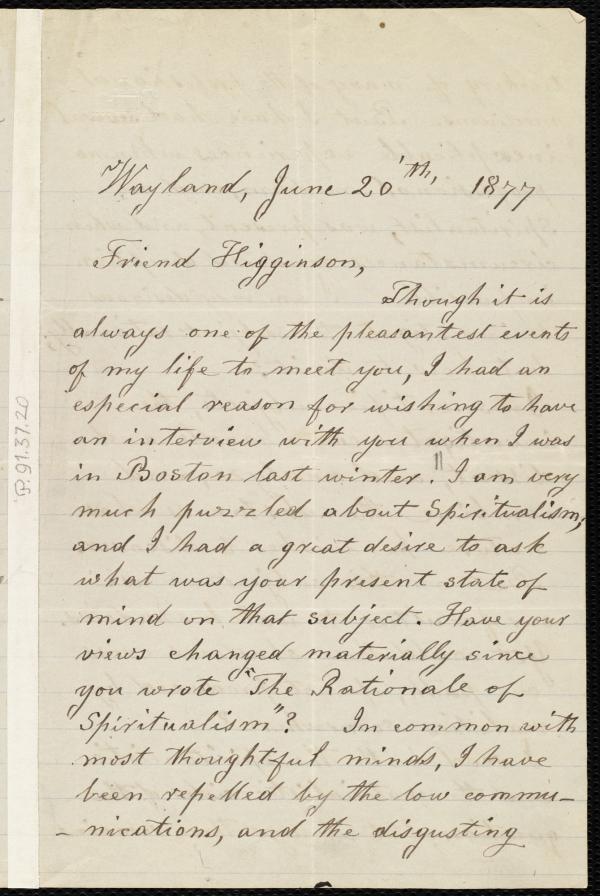 Wayland, June 20'th, 1877
Friend Higginson,
Though it is
always one of the pleasantest events
of my life to meet you, I had an
especial reason for wishing to have
an interview with you when I was
in Boston last winter. " I am very
much puzzled about Spiritualism,
and I had a great desire to ask
what was your present state of
mind on that subject. Have your
views changed materially since
you wrote "The Rationale of
Spiritualism"? In common with
most thoughtful minds, I have
been repelled by the low commu-
- nications, and the disgusting
P.91.37.20